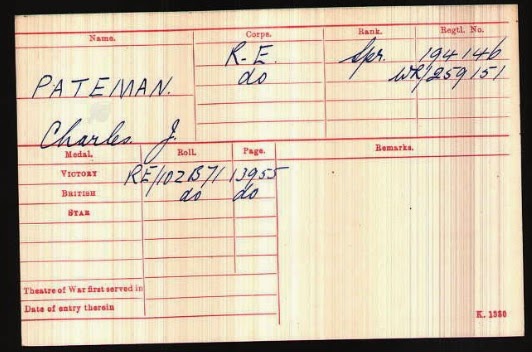 Name. Corps. Rank. Regtl. No.
R-E. Spr. 194146
PATEMAN. do WR/259151
Charles J.
Medal. Roll. Page. Remarks.
VICTORY RE/102B71 13955
BRITISH do do
STAR
Theatre of War first served in
Date of entry therein
K. 1380